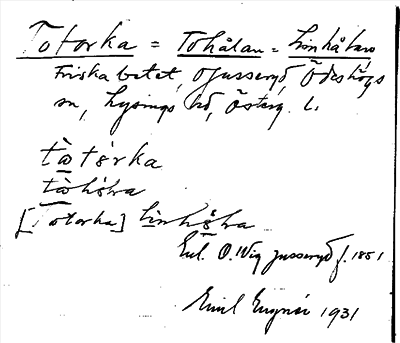 Totorka = Tohålan = Linhålan
Friskabetet, Ojusseryd, Ödeshögs
sn, Lysings hd, Österg. L.
tòtórka
tòhó̤lra
[Totorka] linhó̤lra
Enl. O. Wig Jusseryd f. 1851
Emil 1931